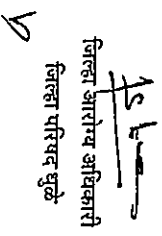 जिल्हा आरोग्य अधिकारी
जिल्हा परिषद धुळे